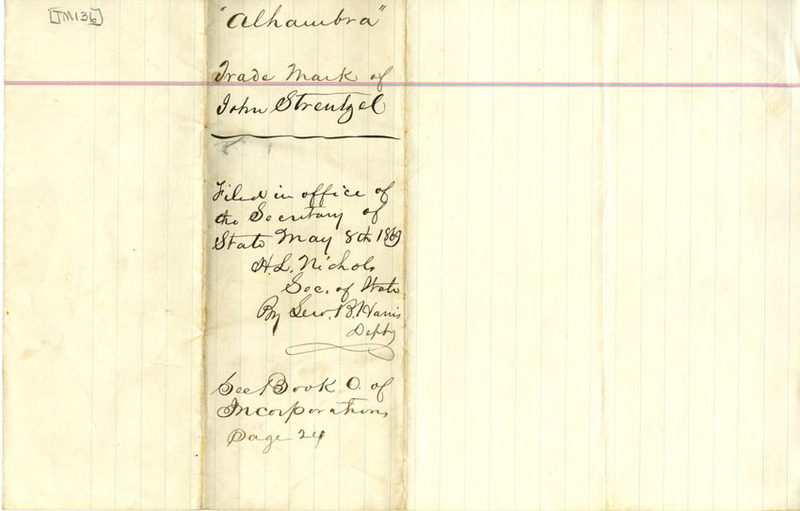 [TM136]
"Alhambra"
Trade Mark of
John Strentzel
Filed in office of
the Secretary of
State May 8th 1869
H. L. Nichols
Sec. of State
By Geo. B. Harris
Depty
See Book O. of
Incorporations
page 24